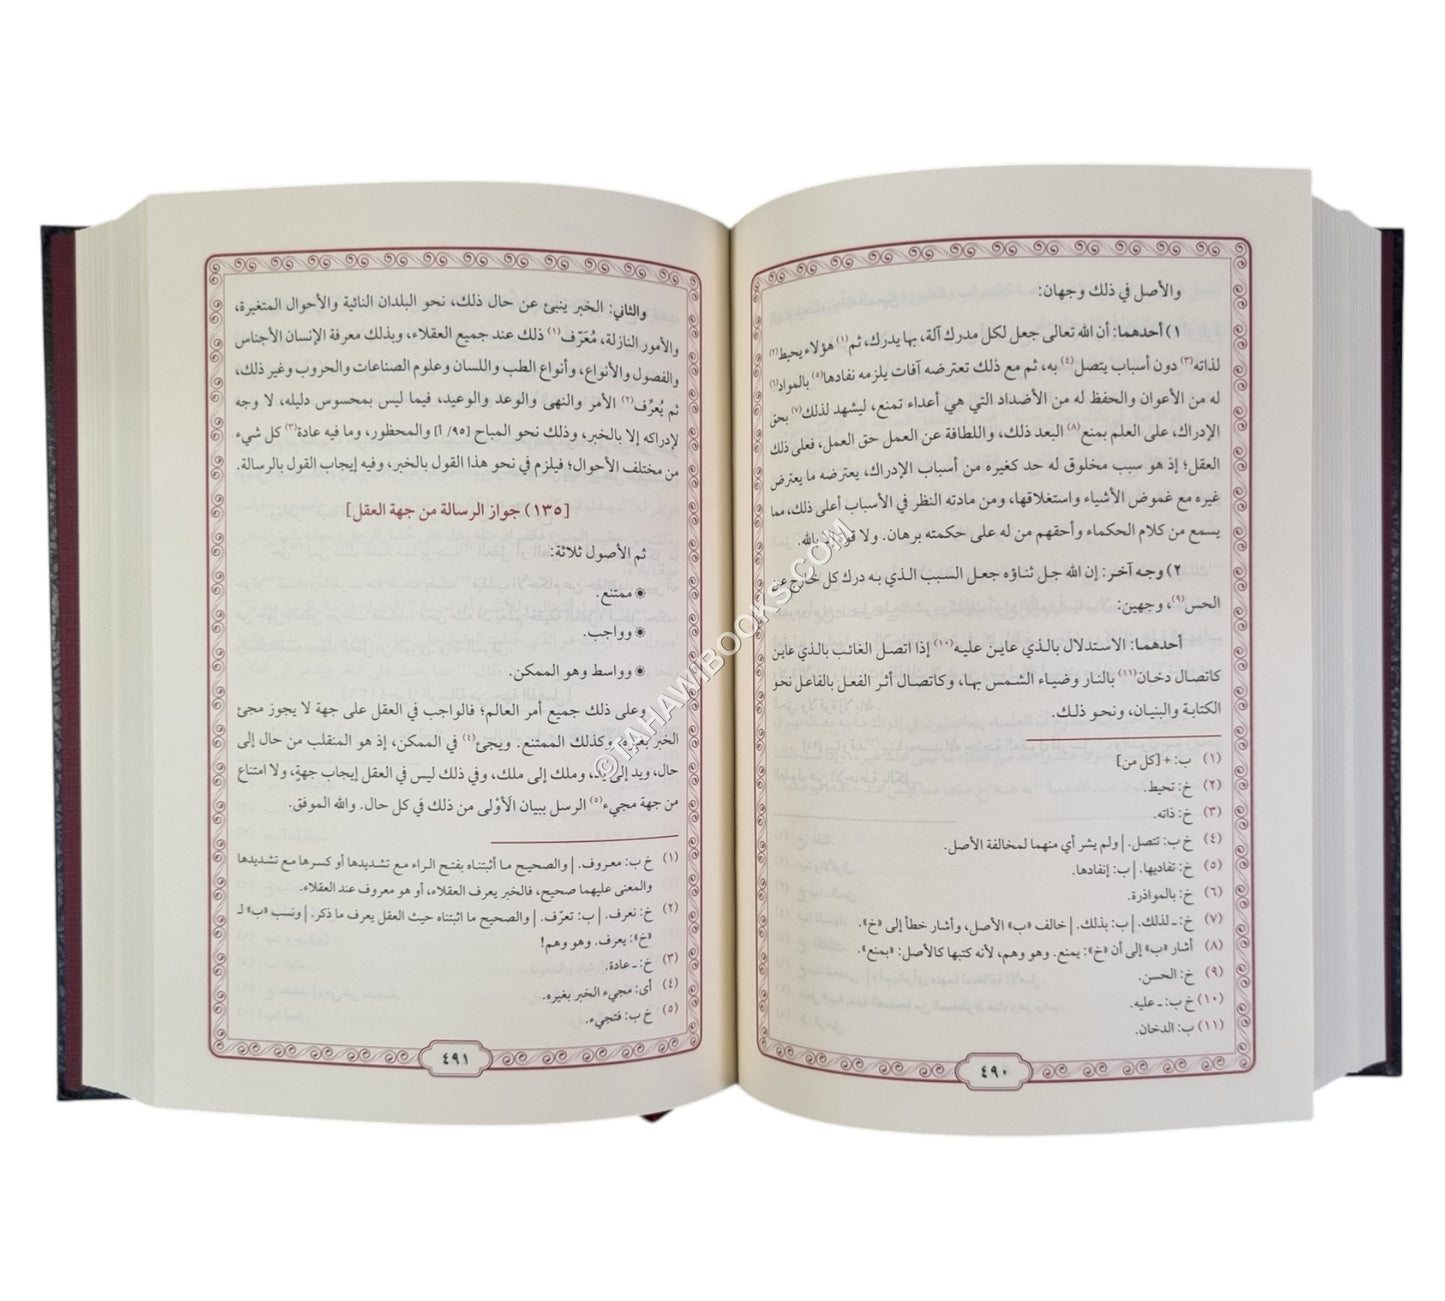 والأصل في ذلك وجهان:
١) أحدهما: أن الله تعالى جعل لكل مدرك آلة، بها يدرك، ثم(١) هؤلاء يحيط(٢)
لذاته(٣) دون أسباب يتصل(٤) به، ثم مع ذلك تعترضه آفات يلزمه نفادها(٥) بالمواد(٦)
له من الأعوان والحفظ له من الأضداد التي هي أعداء تمنع، ليشهد لذلك(٧) بحق
الإدراك، على العلم بمنع(٨) البعد ذلك، واللطافة عن العمل حق العمل، فعلى ذلك
العقل؛ إذ هو سبب مخلوق له حد كغيره من أسباب الإدراك، يعترضه ما يعترض
غيره مع غموض الأشياء واستغلاقها، ومن مادته النظر في الأسباب أعلى ذلك، مما
يسمع من كلام الحكماء وأحقهم من له على حكمته برهان. ولا قوة إلا بالله.
٢) وجه آخر: إن الله جل ثناؤه جعل السبب الذي به درك كل خارج عن
الحس(٩)، وجهين:
أحدهما: الاستدلال بالذي عاين عليه(١٠) إذا اتصل الغائب بالذي عاين
كاتصال دخان(١١) بالنار وضياء الشمس بها، وكاتصال أثر الفعل بالفاعل نحو
الكتابة والبنيان، ونحو ذلك.
(١) ب: + [كل من]
(٢) خ: تحيط.
(٣) خ: ذاته.
(٤) خ ب: تتصل. | ولم يشر أي منهما لمخالفة الأصل.
(٥) خ: تفاديها. | ب: إنفادها.
(٦) خ: بالمواذرة.
(٧) خ: ـ لذلك. | ب: بذلك. | خالف «ب» الأصل، وأشار خطأ إلى «خ».
(٨) أشار «ب» إلى أن «خ»: يمنع. وهو وهم، لأنه كتبها كالأصل: «بمنع».
(٩) خ: الحسن.
(١٠) خ ب: ـ عليه.
(١١) ب: الدخان.
٤٩٠
والثاني: الخبر ينبئ عن حال ذلك، نحو البلدان النائية والأحوال المتغيرة،
والأمور النازلة، مُعَرّف(١) ذلك عند جميع العقلاء، وبذلك معرفة الإنسان الأجناس
والفصول والأنواع، وأنواع الطب واللسان وعلوم الصناعات والحروب وغير ذلك،
ثم يُعرِّف(٢) الأمر والنهى والوعد والوعيد، فيما ليس بمحسوس دليله، لا وجه
لإدراكه إلا بالخبر، وذلك نحو المباح [٩٥/ أ] والمحظور، وما فيه عادة(٣) كل شيء
من مختلف الأحوال؛ فيلزم في نحو هذا القول بالخبر، وفيه إيجاب القول بالرسالة.
[(١٣٥) جواز الرسالة من جهة العقل]
ثم الأصول ثلاثة:
◉ ممتنع.
◉ وواجب.
◉ وواسط وهو الممكن.
وعلى ذلك جميع أمر العالم؛ فالواجب في العقل على جهة لا يجوز مجئ
الخبر بغيره، وكذلك الممتنع. ويجئ(٤) في الممكن، إذ هو المنقلب من حال إلى
حال، ويد إلى يد، وملك إلى ملك، وفي ذلك ليس في العقل إيجاب جهةٍ، ولا امتناع
من جهة مجيء(٥) الرسل ببيان الَأوْلى من ذلك في كل حال. والله الموفق.
(١) خ ب: معروف. | والصحيح ما أثبتناه بفتح الراء مع تشديدها أو كسرها مع تشديدها
والمعنى عليهما صحيح، فالخبر يعرف العقلاء، أو هو معروف عند العقلاء.
(٢) خ: نعرف. | ب: تعرّف. | والصحيح ما اثبتناه حيث العقل يعرف ما ذكر. | ونسب «ب» لـ
«خ»: يعرف. وهو وهم!
(٣) خ: ـ عادة.
(٤) أى: مجيء الخبر بغيره.
(٥) خ ب: فتجيء.
٤٩١
©TAHAWIBOOKS.COM